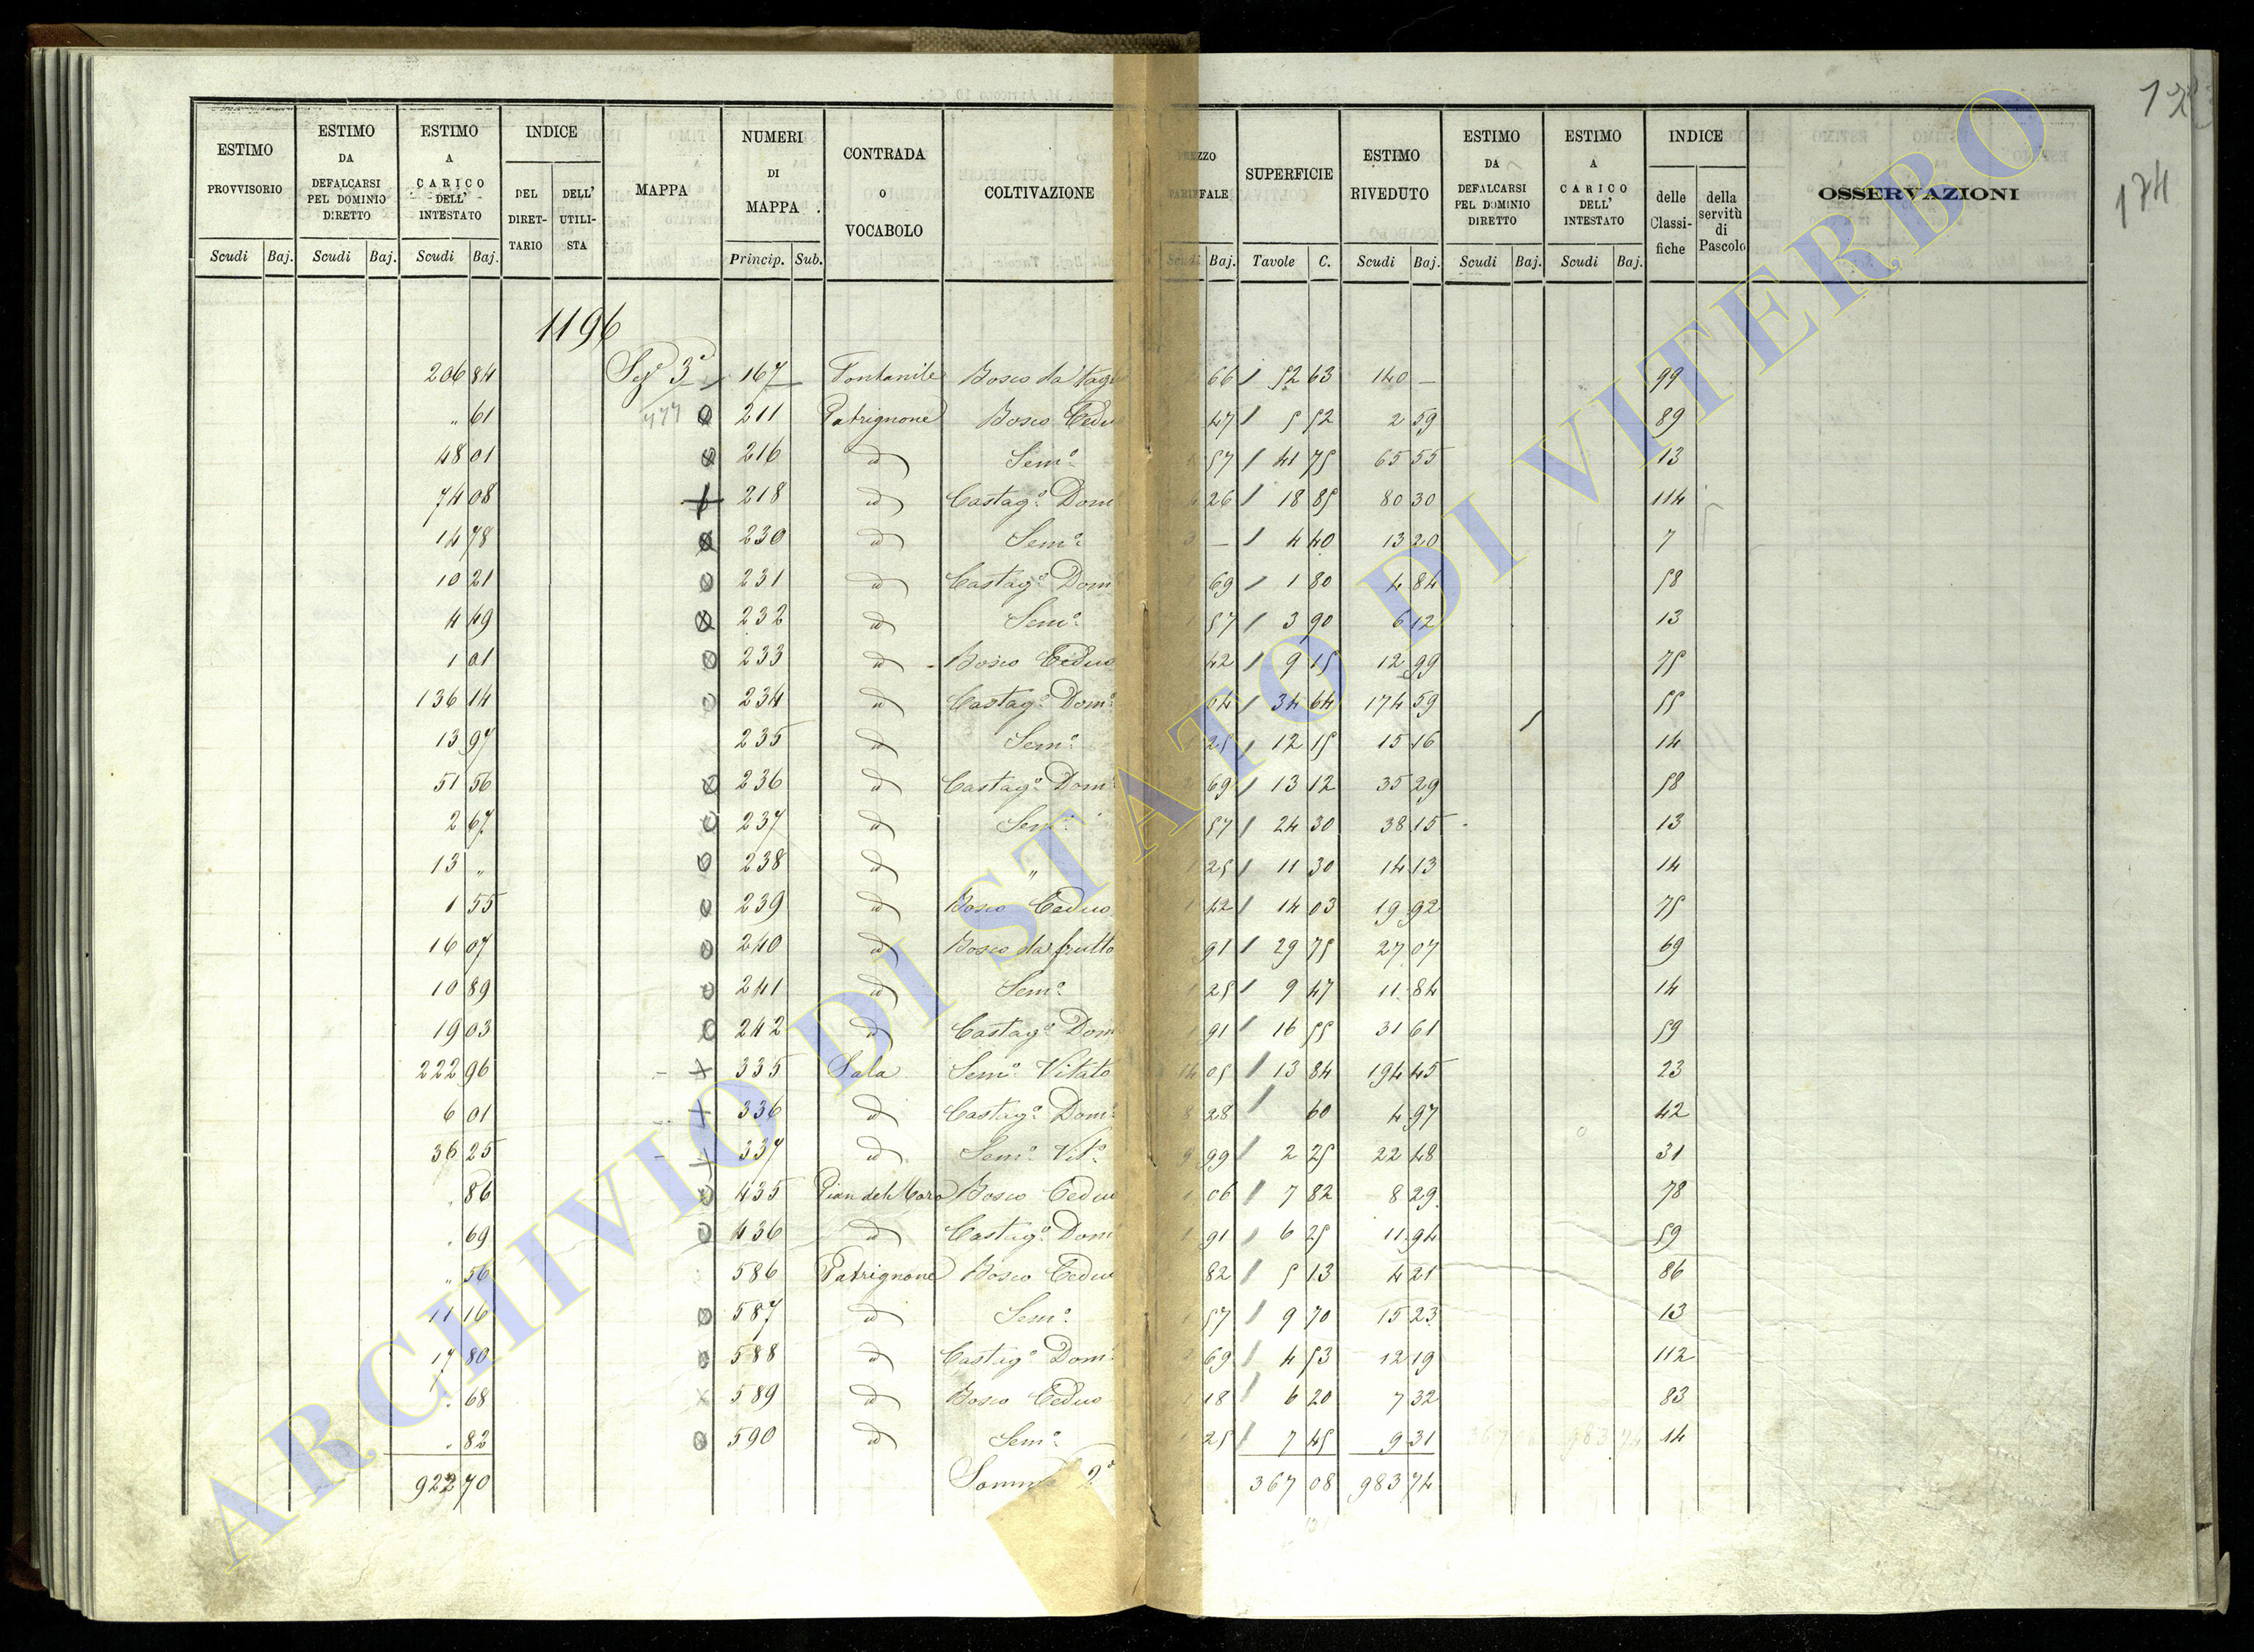 123
174
ESTIMO PROVVISORIO Scudi Baj.
ESTIMO DA DEFALCARSI PEL DOMINIO DIRETTO Scudi Baj.
ESTIMO A CARICO DELL' INTESTATO Scudi Baj.
INDICE DEL DIRET-TARIO DELL' UTILI-STA
MAPPA
NUMERI DI MAPPA Princip. Sub.
CONTRADA o VOCABOLO
COLTIVAZIONE
PREZZO TARIFFALE Scudi Baj.
SUPERFICIE Tavole C.
ESTIMO RIVEDUTO Scudi Baj.
ESTIMO DA DEFALCARSI PEL DOMINIO DIRETTO Scudi Baj.
ESTIMO A CARICO DELL' INTESTATO Scudi Baj.
INDICE delle Classi-fiche della servitù di Pascolo
OSSERVAZIONI
1196
206 84 Sez 3ª 167 Fontanile Bosco da tagl 66 52 63 140 — 99
" 61 777 211 Patrignone Bosco Ceduo 47 5 52 2 59 89
48 01 216 id Semº 57 41 75 65 55 13
74 08 218 id Castagº Dom 26 18 85 80 30 114
14 78 230 id Semº 3 — 4 40 13 20 7
10 21 231 id Castagº Dom 69 1 80 4 84 58
4 49 232 id Semº 1 57 3 90 6 12 13
1 01 233 id Bosco Ceduo 42 9 15 12 99 75
136 14 234 id Castagº Domº 04 34 64 174 59 55
13 97 235 id Semº 25 12 15 15 16 14
51 56 236 id Castagº Domº 2 69 13 12 35 29 58
2 67 237 id Semº 57 24 30 38 15 13
13 " 238 id " 1 25 11 30 14 13 14
1 55 239 id Bosco Ceduo 1 42 14 03 19 92 75
16 07 240 id Bosco da frutto 91 29 75 27 07 69
10 89 241 id Semº 1 25 9 47 11 84 14
19 03 242 id Castagº Dom 1 91 16 55 31 61 59
222 96 335 Sala Semº Vitato 14 05 13 84 194 45 23
6 01 336 id Castagº Domº 8 28 60 4 97 42
36 25 337 id Semº Vitº 9 99 2 25 22 48 31
" 86 435 Pian del Moro Bosco Ceduo 1 06 7 82 8 29 78
" 69 436 id Castagº Dom 1 91 6 25 11 94 59
" 56 586 Patrignone Bosco Ceduo 82 5 13 4 21 86
11 16 587 id Semº 1 57 9 70 15 23 13
17 80 588 id Castagº Domº 2 69 4 53 12 19 112
" 68 589 id Bosco Ceduo 1 18 6 20 7 32 83
" 82 590 id Semº 25 7 45 9 31 367 08 983 74 14
922 70 Somma 2ª 367 08 983 74
ARCHIVIO DI STATO DI VITERBO